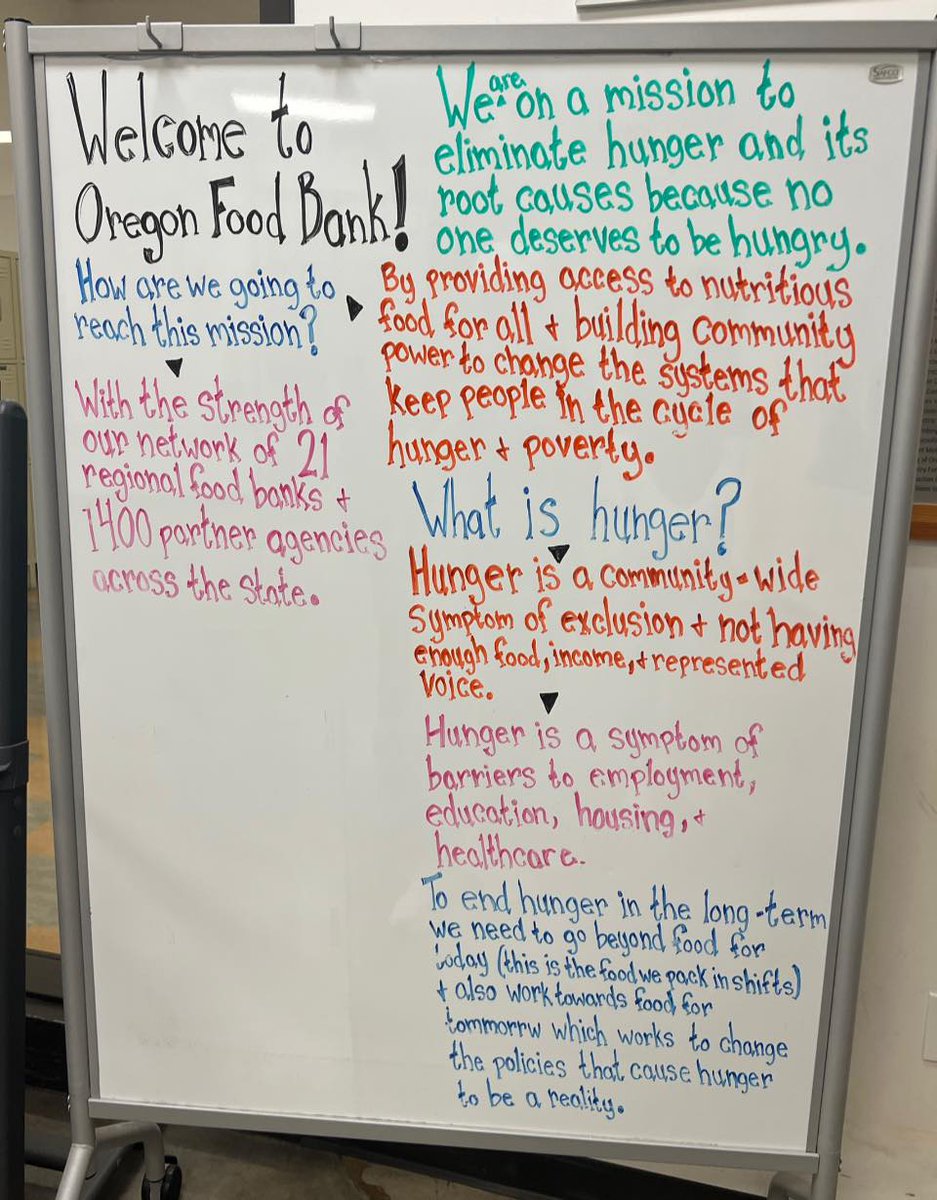 Welcome to
Oregon Food Bank!
How are we going to
reach this mission?
With the strength of
our network of 21
regional food banks +
1400 partner agencies
across the state.
We are on a mission to
eliminate hunger and its
root causes because no
one deserves to be hungry.
By providing access to nutritious
food for all + building community
power to change the systems that
keep people in the cycle of
hunger + poverty.
What is hunger?
Hunger is a community-wide
symptom of exclusion + not having
enough food, income, + represented
voice.
Hunger is a symptom of
barriers to employment,
education, housing, +
healthcare.
To end hunger in the long-term
we need to go beyond food for
today (this is the food we pack in shifts)
+ also work towards food for
tommorrw which works to change
the policies that cause hunger
to be a reality.
SAFCO